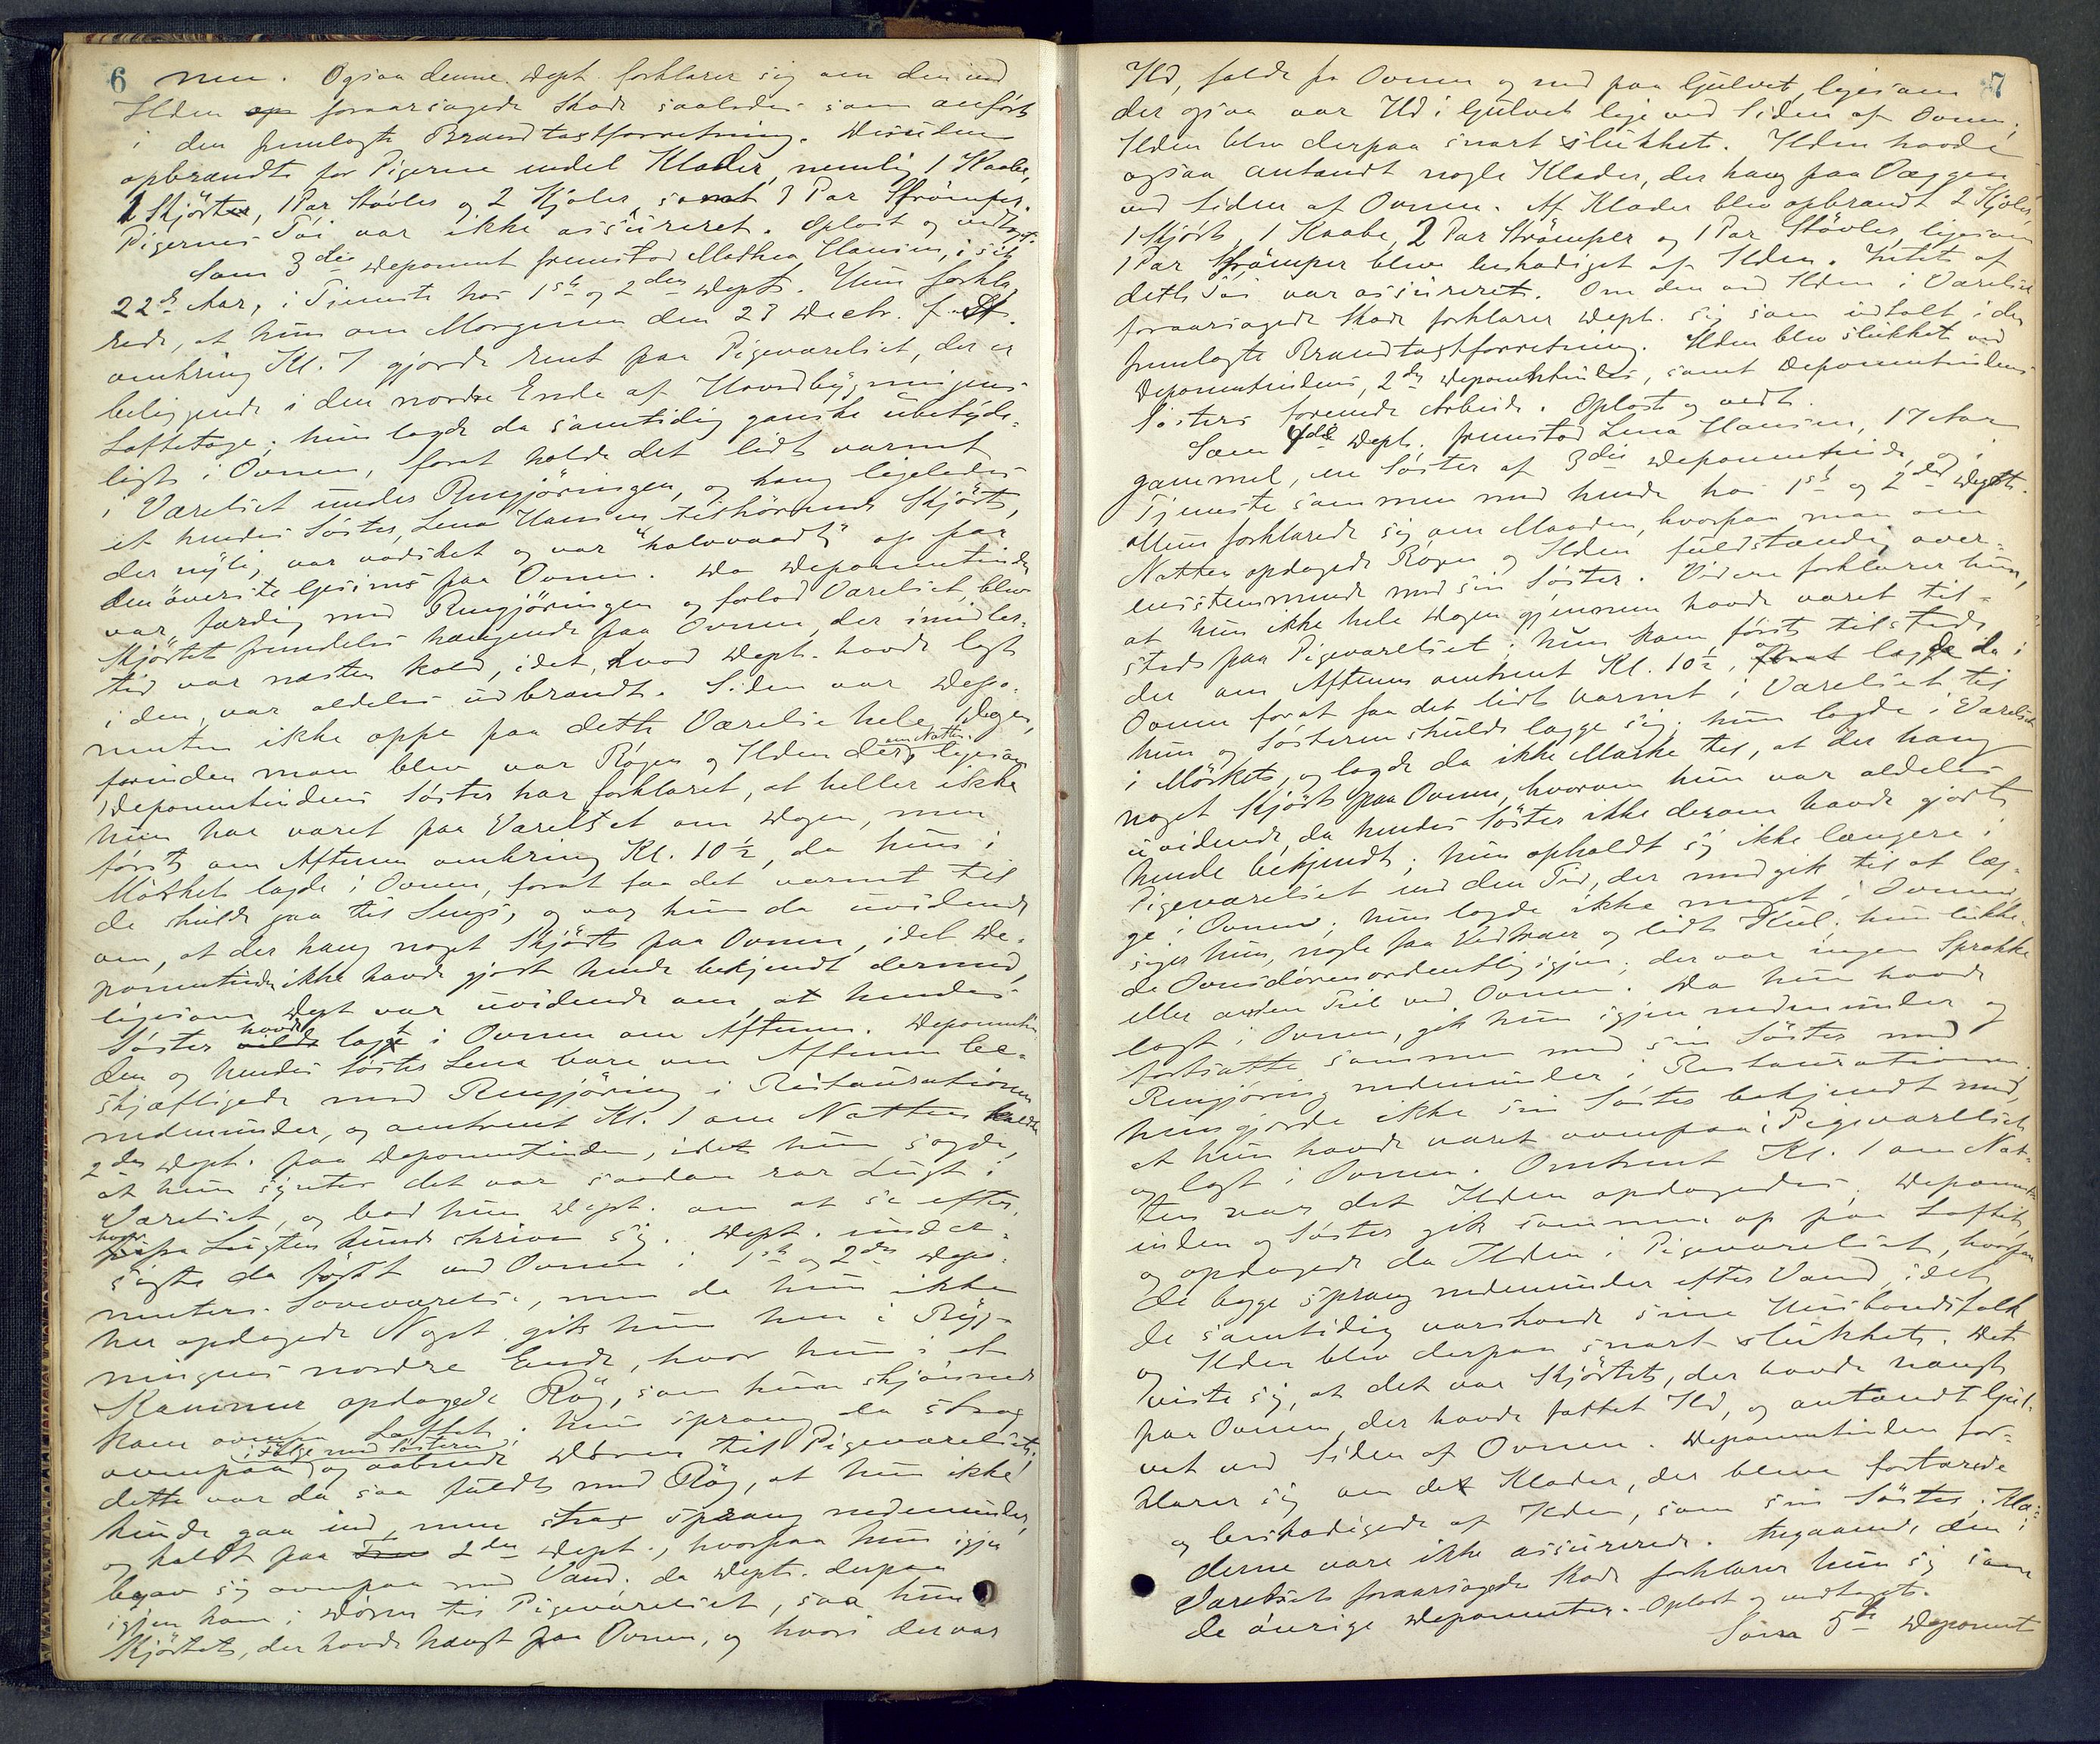 6 nen. Ogsaa denne Dept. forklarer sig om den ved
Ilden op foraarsagede Skade saaledes som anført
i den fremlagte Brandtaxtforretning. Desuden
opbrændte for Pigerne endel Klæder, nemlig 1 Kaabe,
1 Skjört, 1 Par Stövler og 2 Kjoler, samt 3 Par Strömper.
Pigernes Töi var ikke assureret. Oplæst og vedtaget.
Som 3die Deponent fremstod Mathea Hansen, i sit
22de Aar, i Tjeneste hos 1ste og 2den Dept. Hun forkla-
rede, at hun om Morgenen den 23 Decbr. f. A.
omkring Kl. 7 gjorde rent paa Pigeværelset, der er
beliggende i den nordre Ende af Hovedbygningens
Loftetage; hun lagde da samtidig ganske ubetyde-
ligt i Ovnen, forat holde det lidt varmt
i Værelset under Rengjöringen, og hang ligeledes
et hendes Söster, Lena Hansen, tilhörende Skjört,
der nylig var vadsket og var "halvvaadt" op paa
den överste Gesims paa Ovnen. Da Deponentinden
var færdig med Rengjöringen og forlod Værelset, blev
Skjörtet fremdeles hængende paa Ovnen, der imidler-
tid var næsten kold, idet, hvad Dept. havde lagt
i den, var aldeles udbrændt. Siden var Depo-
nenten ikke oppe paa dette Værelse hele Dagen,
forinden man blev var Rögen og Ilden der om Natten, ligesom
Deponentindens Söster har forklaret, at heller ikke
hun har været paa Værelset om Dagen, men
först om Aftenen omkring Kl. 10½, da hun i
Mörket lagde i Ovnen, forat faa det varmt til
de skulde gaa til Sengs, og var hun da uvidende
om, at der hang noget Skjört paa Ovnen, idet De-
ponentinden ikke havde gjort hende bekjendt dermed,
ligesom Dept. var uvidende om, at hendes
Söster vilde havde lagt i Ovnen om Aftenen. Deponentin-
den og hendes Söster Lena vare om Aftenen be-
skjæftigede med Rengjöring i Restaurationen
nedenunder, og omtrent Kl. 1 om Natten kaldte
2den Dept. paa Deponentinden, idet hun sagde,
at hun syntes det var saadan rar Lugt i
Værelset, og bad hun Dept. om at se efter,
hvorfra Lugten kunde skrive sig. Dept. under-
sögte da först ved Ovnen i 1ste og 2den Depo-
nenters Soveværelse, men da hun ikke
her opdagede Noget, gik hun hen i Byg-
ningens nordre Ende, hvor hun i et
Kammer opdagede Rög, som hun skjönnede
kom ovenfra Loftet. Hun sprang da strax
ovenpaa i Følge med Søsteren og aabnede Dören til Pigeværelset;
dette var da saa fuldt med Rög, at hun ikke
kunde gaa ind, men strax sprang nedenunder,
og kaldt paa 2den Dept., hvorpaa hun igjen
begav sig ovenpaa med Vand. Da Dept. derpaa
igjen kom i Dören til Pigeværelset, saa hun
Skjörtet, der havde hængt paa Ovnen, og hvori der var
7
Ild, falde fra Ovnen og ned paa Gulvet, ligesom
der ogsaa var Ild i Gulvet lige ved Siden af Ovnen;
Ilden blev derpaa snart slukket. Ilden havde
ogsaa antændt nogle Klæder, der hang paa Væggen
ved Siden af Ovnen. Af Klæder blev opbrændt 2 Kjoler,
1 Skjört, 1 Kaabe, 2 Par Strömper og 1 Par Stövler, ligesom
1 Par Strömper bleve beskadiget af Ilden. Intet af
dette Töi var assureret. Om den ved Ilden i Værelset
foraarsagede Skade forklarer Dept. sig som udtalt i den
fremlagte Brandtaxtforretning. Ilden blev slukket ved
Deponentindens, 2den Deponentindes, samt Deponentindens
Sösters forenede Arbeide. Oplæst og vedt.
Som 4de Dept. fremstod Lena Hansen, 17 Aar
gammel, en Söster af 3die Deponentinde, og i
Tjeneste sammen med hende hos 1ste og 2den Dept.
Hun forklarede sig om Maaden, hvorpaa man om
Natten opdagede Rögen og Ilden fuldstændig over-
ensstemmende med sin Söster. Videre forklarer hun,
at hun ikke hele Dagen gjennem havde været til-
stede paa Pigeværelset; hun kom först tilstede
der om Aftenen omtrent Kl. 10½, og lagde da i
Ovnen forat faa det lidt varmt i Værelset til
hun og Sösteren skulde lægge sig; hun lagde i Værelset
i Mörket, og lagde da ikke Mærke til, at der hang
noget Skjört paa Ovnen, hvorom hun var aldeles
uvidende, da hendes Söster ikke derom havde gjort
hende bekjendt; hun opholdt sig ikke længere i
Pigeværelset end den Tid, der medgik til at læg-
ge i Ovnen; hun lagde ikke meget i Ovnen,
siger hun, nogle faa Vedtrær og lidt Kul; hun lukke-
de Ovnsdören ordentlig igjen; der var ingen Sprække
eller anden Feil ved Ovnen. Da hun havde
lagt i Ovnen, gik hun igjen nedenunder og
fortsatte sammen med sin Söster med
Rengjöring nedenunder i Restaurationen.
Hun gjorde ikke sin Söster bekjendt med,
at hun havde været ovenpaa i Pigeværelset
og lagt i Ovnen. Omtrent Kl. 1 om Nat-
ten var det Ilden opdagedes; Deponent-
inden og Söster gik sammen op paa Loftet
og opdagede da Ilden i Pigeværelset, hvorpaa
de begge sprang nedenunder efter Vand, idet
de samtidig varskoede sine Husbondsfolk
og Ilden blev derpaa snart slukket. Det
viste sig, at det var Skjörtet, der havde hængt
paa Ovnen, der havde fattet Ild, og antændt Gul-
vet ved Siden af Ovnen. Deponentinden for-
klarer sig om de Klæder, der bleve fortærede
og beskadigede af Ilden, som sin Söster. Klæ-
derne vare ikke assurerede. Angaaende den i
Værelset foraarsagede Skade forklarer hun sig som
de övrige Deponenter. Oplæst og vedtaget.
Som 5te Deponent